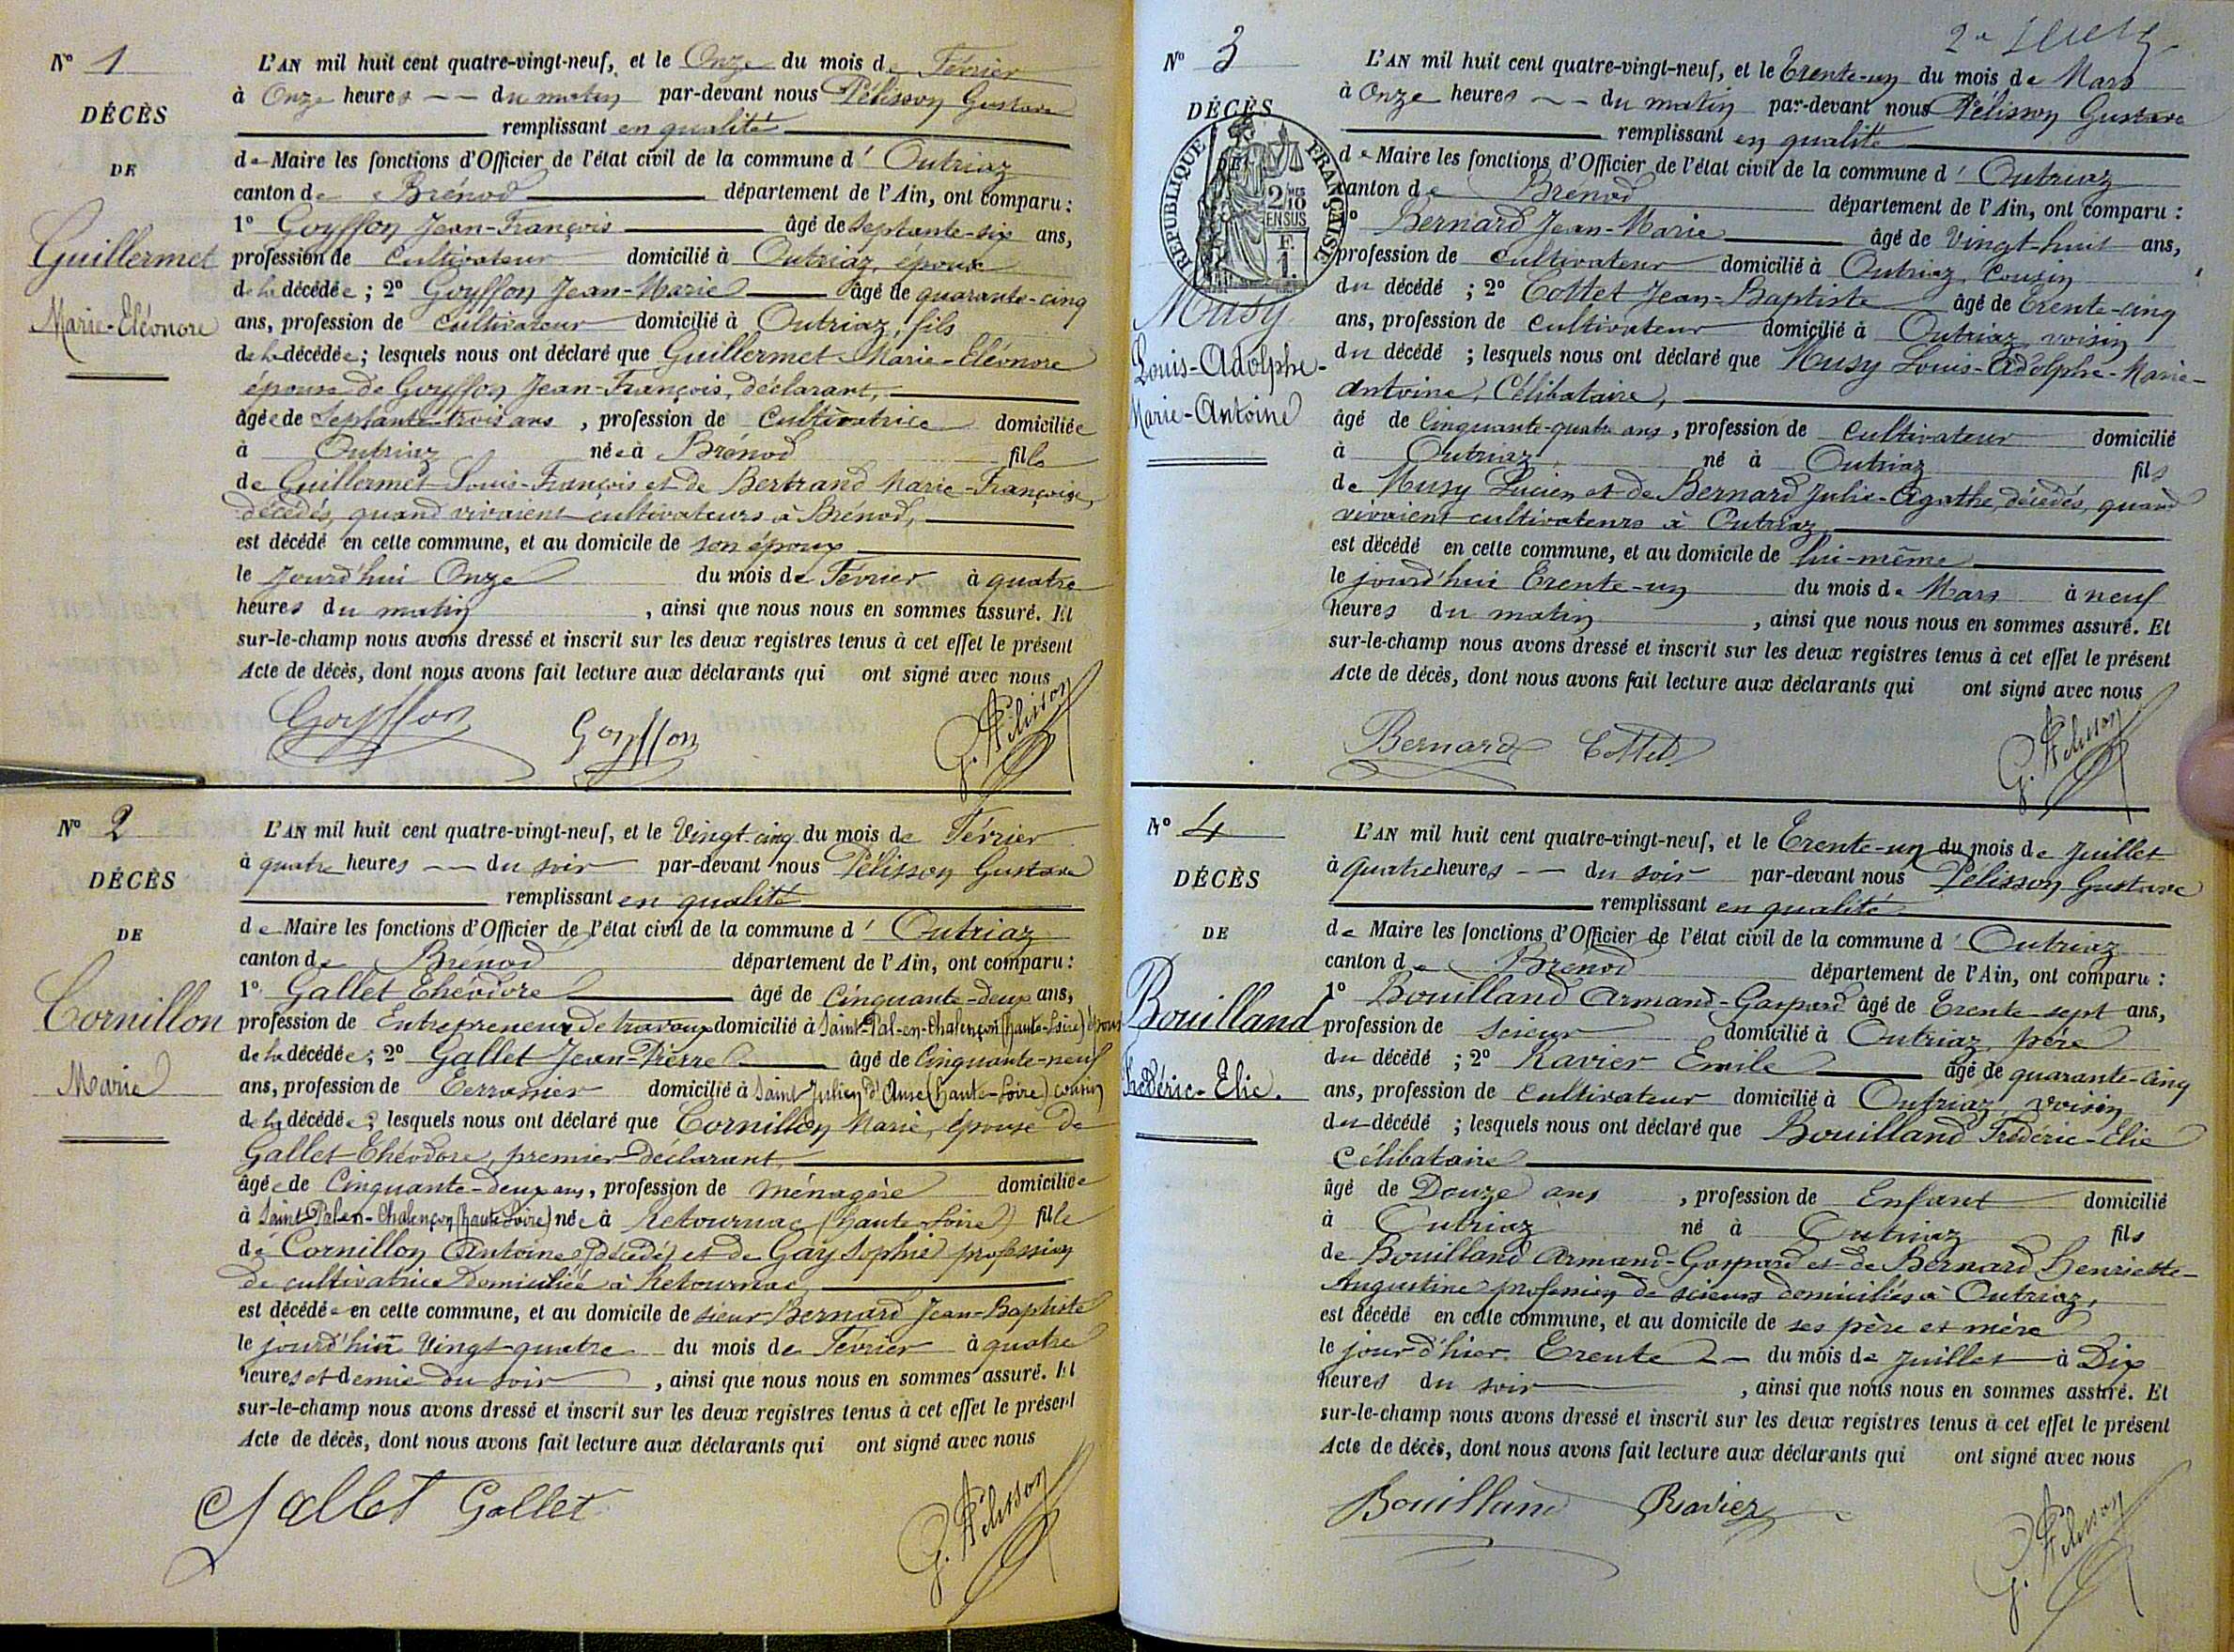 N° 1
DÉCÈS
DE
Guillermet
Marie-Eléonore
L'AN mil huit cent quatre-vingt-neuf, et le Onze du mois de Février
à Onze heures -- du matin par-devant nous Pélisson Gustave
remplissant en qualité
de Maire les fonctions d'Officier de l'état civil de la commune d' Outriaz
canton de Brénod département de l'Ain, ont comparu :
1° Goyffon Jean-François âgé de septante-six ans,
profession de Cultivateur domicilié à Outriaz, époux
de la décédée ; 2° Goyffon Jean-Marie âgé de quarante-cinq
ans, profession de Cultivateur domicilié à Outriaz, fils
de la décédée ; lesquels nous ont déclaré que Guillermet Marie-Eléonore
épouse de Goyffon Jean-François, déclarant,
âgée de Septante-trois ans , profession de Cultivatrice domiciliée
à Outriaz née à Brénod fille
de Guillermet Louis-François et de Bertrand Marie-Françoise,
décédés, quand vivaient cultivateurs à Brénod,
est décédé en cette commune, et au domicile de son époux
le jourd'hui Onze du mois de Février à quatre
heures du matin , ainsi que nous nous en sommes assuré. Et
sur-le-champ nous avons dressé et inscrit sur les deux registres tenus à cet effet le présent
Acte de décès, dont nous avons fait lecture aux déclarants qui ont signé avec nous
Goyffon Goyffon G. Pélisson
N° 2
DÉCÈS
DE
Cornillon
Marie
L'AN mil huit cent quatre-vingt-neuf, et le Vingt-cinq du mois de Février
à quatre heures -- du soir par-devant nous Pélisson Gustave
remplissant en qualité
de Maire les fonctions d'Officier de l'état civil de la commune d' Outriaz
canton de Brénod département de l'Ain, ont comparu :
1° Gallet Théodore âgé de Cinquante-deux ans,
profession de Entrepreneur de travaux domicilié à Saint-Pal-en-Chalençon (haute-Loire) époux
de la décédée ; 2° Gallet Jean-Pierre âgé de Cinquante-neuf
ans, profession de Terrassier domicilié à Saint Julien d'Anse (haute-Loire) cousin
de la décédée ; lesquels nous ont déclaré que Cornillon Marie, épouse de
Gallet Théodore, premier déclarant,
âgée de Cinquante-deux ans, profession de ménagère domiciliée
à Saint Pal-en-Chalençon (haute Loire) née à Retournac (haute Loire) fille
de Cornillon Antoine (décédé) et de Gay Sophie profession
de cultivatrice domiciliée à Retournac,
est décédée en cette commune, et au domicile de sieur Bernard Jean-Baptiste
le jourd'hier Vingt-quatre du mois de Février à quatre
heures et demie du soir , ainsi que nous nous en sommes assuré. Et
sur-le-champ nous avons dressé et inscrit sur les deux registres tenus à cet effet le présent
Acte de décès, dont nous avons fait lecture aux déclarants qui ont signé avec nous
Gallet Gallet G. Pélisson
N° 3
DÉCÈS
RÉPUBLIQUE FRANÇAISE
2/10
EN SUS
F.
1.
Musy
Louis-Adolphe-
Marie-Antoine
L'AN mil huit cent quatre-vingt-neuf, et le Trente-un du mois de Mars
à Onze heures -- du matin par-devant nous Pélisson Gustave
remplissant en qualité
de Maire les fonctions d'Officier de l'état civil de la commune d' Outriaz
canton de Brénod département de l'Ain, ont comparu :
1° Bernard Jean-Marie âgé de Vingt-huit ans,
profession de cultivateur domicilié à Outriaz, cousin
du décédé ; 2° Cottet Jean-Baptiste âgé de Trente-cinq
ans, profession de cultivateur domicilié à Outriaz, voisin
du décédé ; lesquels nous ont déclaré que Musy Louis-Adolphe-Marie-
Antoine, Célibataire,
âgé de Cinquante-quatre ans, profession de Cultivateur domicilié
à Outriaz né à Outriaz fils
de Musy Lucien et de Bernard Julie-Agathe, décédés, quand
vivaient cultivateurs à Outriaz
est décédé en cette commune, et au domicile de lui-même
le jourd'hui Trente-un du mois de Mars à neuf
heures du matin , ainsi que nous nous en sommes assuré. Et
sur-le-champ nous avons dressé et inscrit sur les deux registres tenus à cet effet le présent
Acte de décès, dont nous avons fait lecture aux déclarants qui ont signé avec nous
Bernard Cottet G. Pélisson
N° 4
DÉCÈS
DE
Bouilland
Frédéric-Elie.
L'AN mil huit cent quatre-vingt-neuf, et le Trente-un du mois de Juillet
à quatre heures -- du soir par-devant nous Pélisson Gustave
remplissant en qualité
de Maire les fonctions d'Officier de l'état civil de la commune d' Outriaz
canton de Brénod département de l'Ain, ont comparu :
1° Bouilland Armand-Gaspard âgé de Trente-sept ans,
profession de scieur domicilié à Outriaz, père
du décédé ; 2° Ravier Emile âgé de quarante-cinq
ans, profession de cultivateur domicilié à Outriaz, voisin
du décédé ; lesquels nous ont déclaré que Bouilland Frédéric-Elie
Célibataire
âgé de Douze ans , profession de Enfant domicilié
à Outriaz né à Outriaz fils
de Bouilland Armand-Gaspard et de Bernard Henriette-
Augustine profession de scieurs domiciliés à Outriaz,
est décédé en cette commune, et au domicile de ses père et mère
le jour d'hier Trente du mois de Juillet à Dix
heures du soir , ainsi que nous nous en sommes assuré. Et
sur-le-champ nous avons dressé et inscrit sur les deux registres tenus à cet effet le présent
Acte de décès, dont nous avons fait lecture aux déclarants qui ont signé avec nous
Bouilland Ravier G. Pélisson